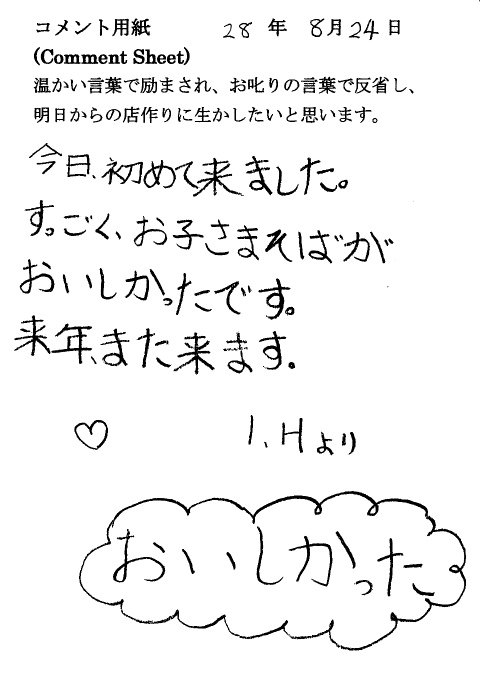 コメント用紙 28 年 8月24日
(Comment Sheet)
温かい言葉で励まされ、お叱りの言葉で反省し、
明日からの店作りに生かしたいと思います。
今日、初めて来ました。
すっごく、お子さまそばが
おいしかったです。
来年、また来ます。
♡ I、Hより
おいしかった